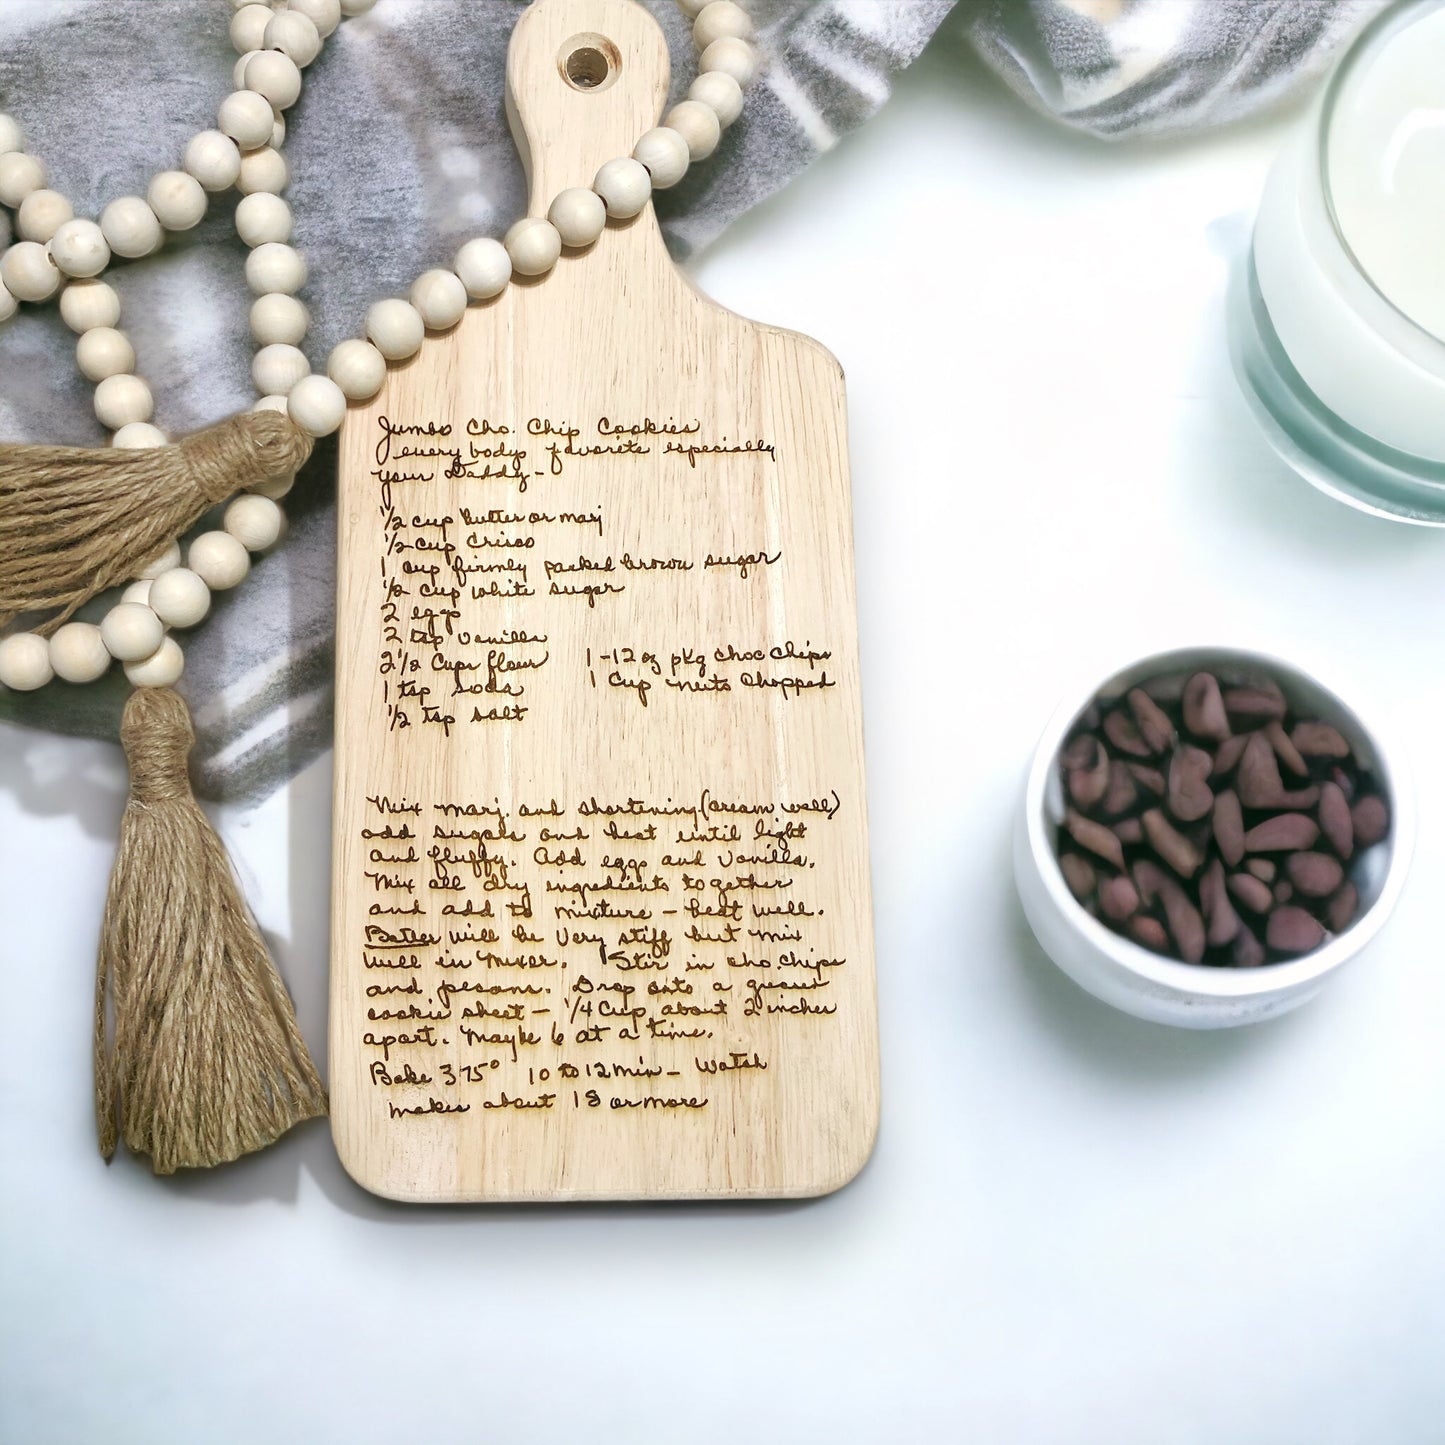 Jumbo Cho. Chip Cookies
every bodys favorite especially
your Daddy -
1/2 cup butter or marj
1/2 cup Crisco
1 cup firmly packed brown sugar
1/2 cup white sugar
2 eggs
2 tsp vanilla
2 1/2 cups flour
1 tsp soda
1/2 tsp salt
1 - 12 oz pkg choc chips
1 cup nuts chopped
Mix marj. and shortening (cream well)
add sugars and beat until light
and fluffy. Add eggs and vanilla.
Mix all dry ingredients together
and add to mixture - beat well.
Batter will be very stiff but mix
well in mixer. Stir in cho. chips
and pecans. Drop onto a greased
cookie sheet - 1/4 cup about 2 inches
apart. Maybe 6 at a time.
Bake 375° 10 to 12 min - Watch
makes about 18 or more